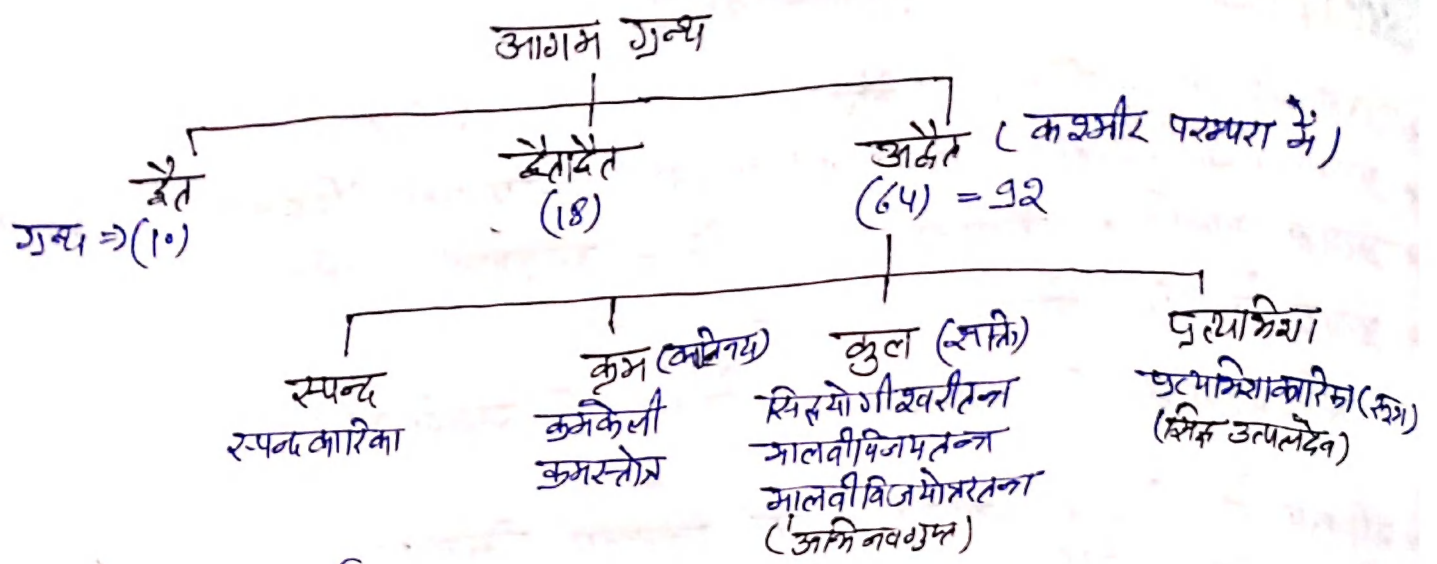 आगम ग्रन्थ
द्वैत
ग्रन्थ ⇒ (10)
द्वैताद्वैत
(18)
अद्वैत (कश्मीर परम्परा में)
(64) = 92
स्पन्द
स्पन्दकारिका
क्रम
क्रमकेली
क्रमस्तोत्र
कुल (शक्ति)
सिद्धयोगीश्वरीतन्त्र
मालवीविजयतन्त्र
मालवीविजयोत्तरतन्त्र
(अभिनवगुप्त)
प्रत्यभिज्ञा
प्रत्यभिज्ञाकारिका
(सिद्ध उत्पलदेव)